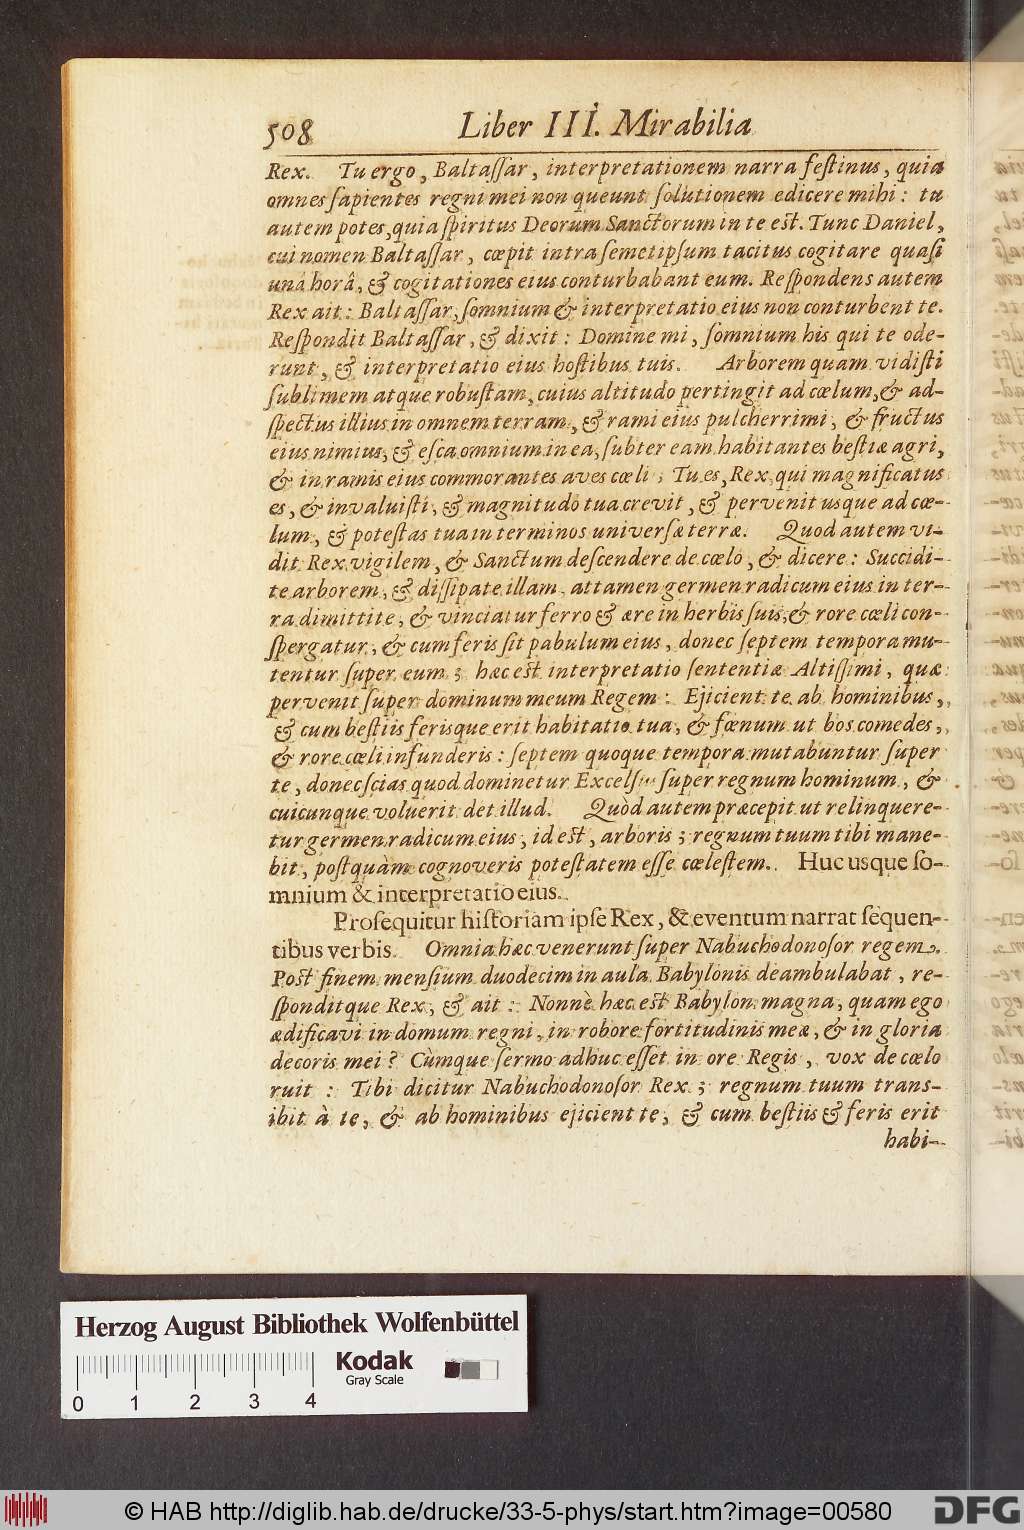 508 Liber III. Mirabilia
Rex. Tu ergo, Baltaſſar, interpretationem narra feſtinus, quia
omnes ſapientes regni mei non queunt ſolutionem edicere mihi: tu
autem potes, quia ſpiritus Deorum Sanctorum in te est. Tunc Daniel,
cui nomen Baltaſſar, cœpit intra ſemetipſum tacitus cogitare quaſi
unâ horâ, & cogitationes eius conturbabant eum. Reſpondens autem
Rex ait: Baltaſſar, ſomnium & interpretatio eius non conturbent te.
Reſpondit Baltaſſar, & dixit: Domine mi, ſomnium his qui te ode-
runt, & interpretatio eius hoſtibus tuis. Arborem quam vidiſti
ſublimem atque robuſtam, cuius altitudo pertingit ad cœlum, & ad-
ſpectus illius in omnem terram, & rami eius pulcherrimi, & fructus
eius nimius, & eſca omnium in ea, ſubter eam habitantes beſtiæ agri,
& in ramis eius commorantes aves cœli; Tu es, Rex, qui magnificatus
es, & invaluiſti, & magnitudo tua crevit, & pervenit usque ad cœ-
lum, & poteſtas tua in terminos univerſæ terræ. Quod autem vi-
dit Rex vigilem, & Sanctum deſcendere de cœlo, & dicere: Succidi-
te arborem, & diſſipate illam, attamen germen radicum eius in ter-
ra dimittite, & vinciatur ferro & ære in herbis ſuis, & rore cœli con-
ſpergatur, & cum feris ſit pabulum eius, donec ſeptem tempora mu-
tentur ſuper eum; hæc est interpretatio ſententiæ Altiſſimi, quæ
pervenit ſuper dominum meum Regem: Ejicient te ab hominibus,
& cum beſtiis ferisque erit habitatio tua, & fœnum ut bos comedes,
& rore cœli infunderis: ſeptem quoque tempora mutabuntur ſuper
te, donec ſcias quod dominetur Excelſus ſuper regnum hominum, &
cuicunque voluerit det illud. Quòd autem præcepit ut relinquere-
tur germen radicum eius, id est, arboris; regnum tuum tibi mane-
bit, poſtquàm cognoveris poteſtatem eſſe cœleſtem. Huc usque ſo-
mnium & interpretatio eius.
Proſequitur hiſtoriam ipſe Rex, & eventum narrat ſequen-
tibus verbis. Omnia hæc venerunt ſuper Nabuchodonoſor regem.
Poſt finem menſium duodecim in aula Babylonis deambulabat, re-
ſponditque Rex, & ait: Nonnè hæc est Babylon magna, quam ego
ædificavi in domum regni, in robore fortitudinis meæ, & in gloria
decoris mei? Cùmque ſermo adhuc eſſet in ore Regis, vox de cœlo
ruit: Tibi dicitur Nabuchodonoſor Rex; regnum tuum trans-
ibit à te, & ab hominibus ejicient te, & cum beſtiis & feris erit
habi-
Herzog August Bibliothek Wolfenbüttel
Kodak
Gray Scale
0 1 2 3 4
© HAB http://diglib.hab.de/drucke/33-5-phys/start.htm?image=00580
DFG